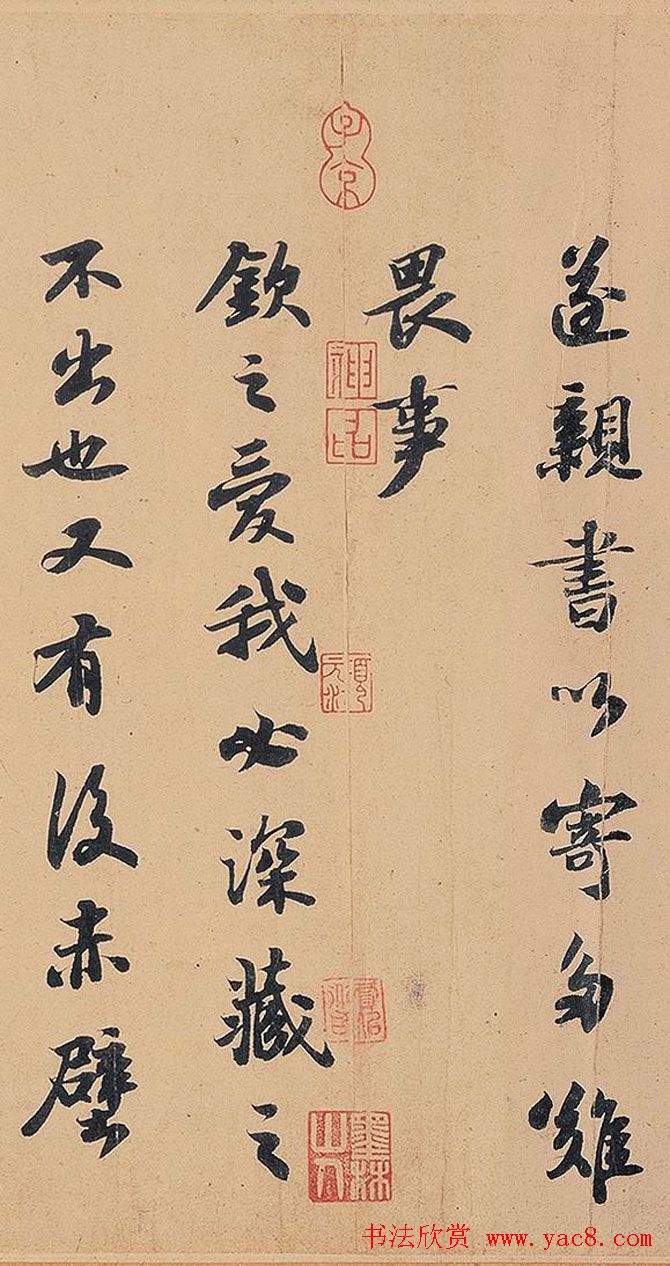 遂親書以寄多難
畏事
欽之愛我必深藏之
不出也又有後赤壁
子京
神品
墨林山人
书法欣赏 www.yac8.com